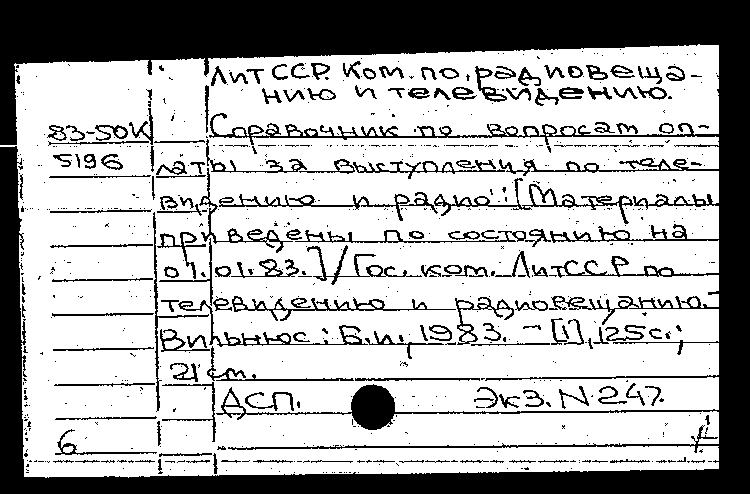 ЛитССР. Ком. по радиовеща-
нию и телевидению.
83-50К Справочник по вопросам оп-
5196 латы за выступления по теле-
видению и радио : [Материалы
приведены по состоянию на
01.01.83.] / Гос. ком. ЛитССР по
телевидению и радиовещанию. -
Вильнюс : Б.и., 1983. - [1], 125 с. ;
21 см.
ДСП. Экз. N 247.
6